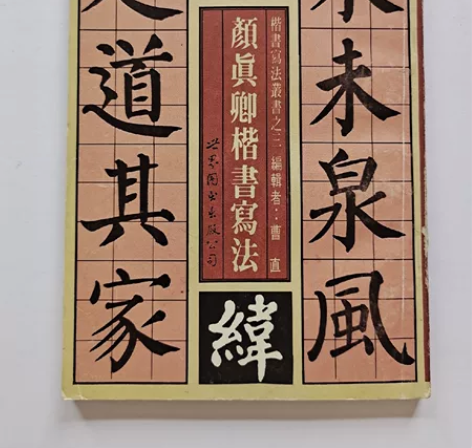 未泉風
楷書寫法叢書之三 編輯者：曹 直
顏眞卿楷書寫法
世界图书出版公司
緯
道其家